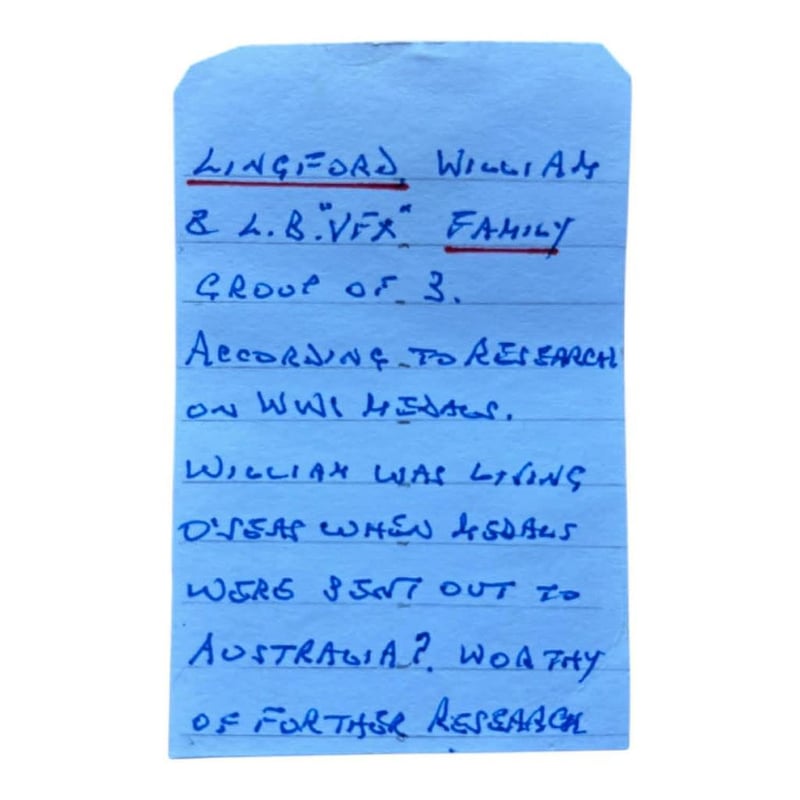 LINGFORD, WILLIAM
& L.B. "VFX" FAMILY
GROUP OF 3.
ACCORDING TO RESEARCH
ON WWI MEDALS.
WILLIAM WAS LIVING
O'SEAS WHEN MEDALS
WERE SENT OUT TO
AUSTRALIA?. WORTHY
OF FURTHER RESEARCH